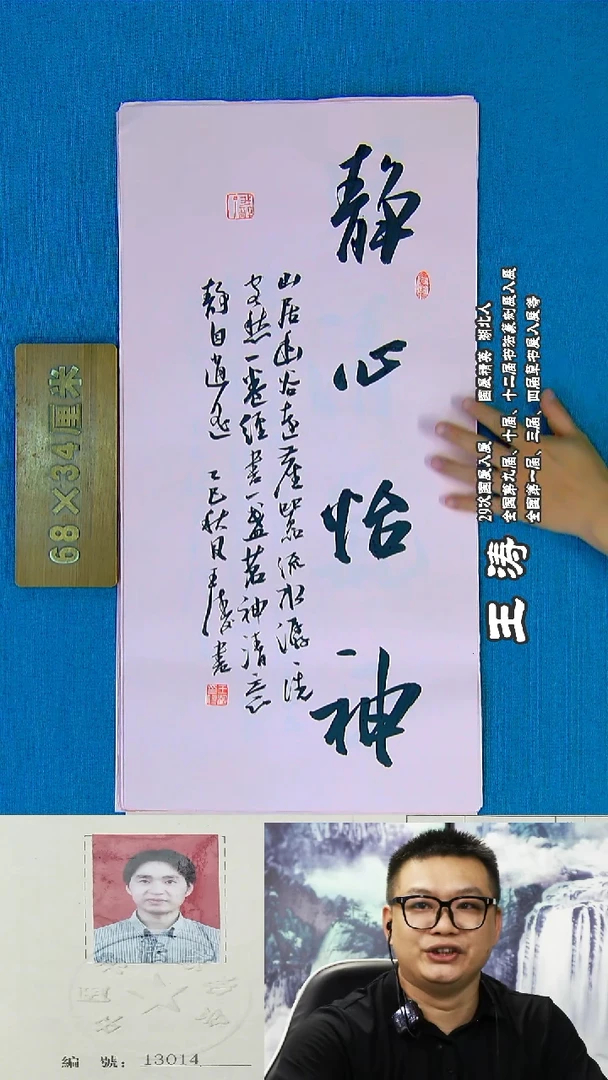 静心怡神
山居幽谷远尘嚣流水潺
安然一卷经书一盏茗神清意
静自逍遥 乙巳秋月王涛书
68×34厘米
29次國展入展 國展精英 湖北人
全國第九届、十届、十二届书法篆刻展入展
全國第一届、三届、四届草书展入展等
王涛
編 號：13014